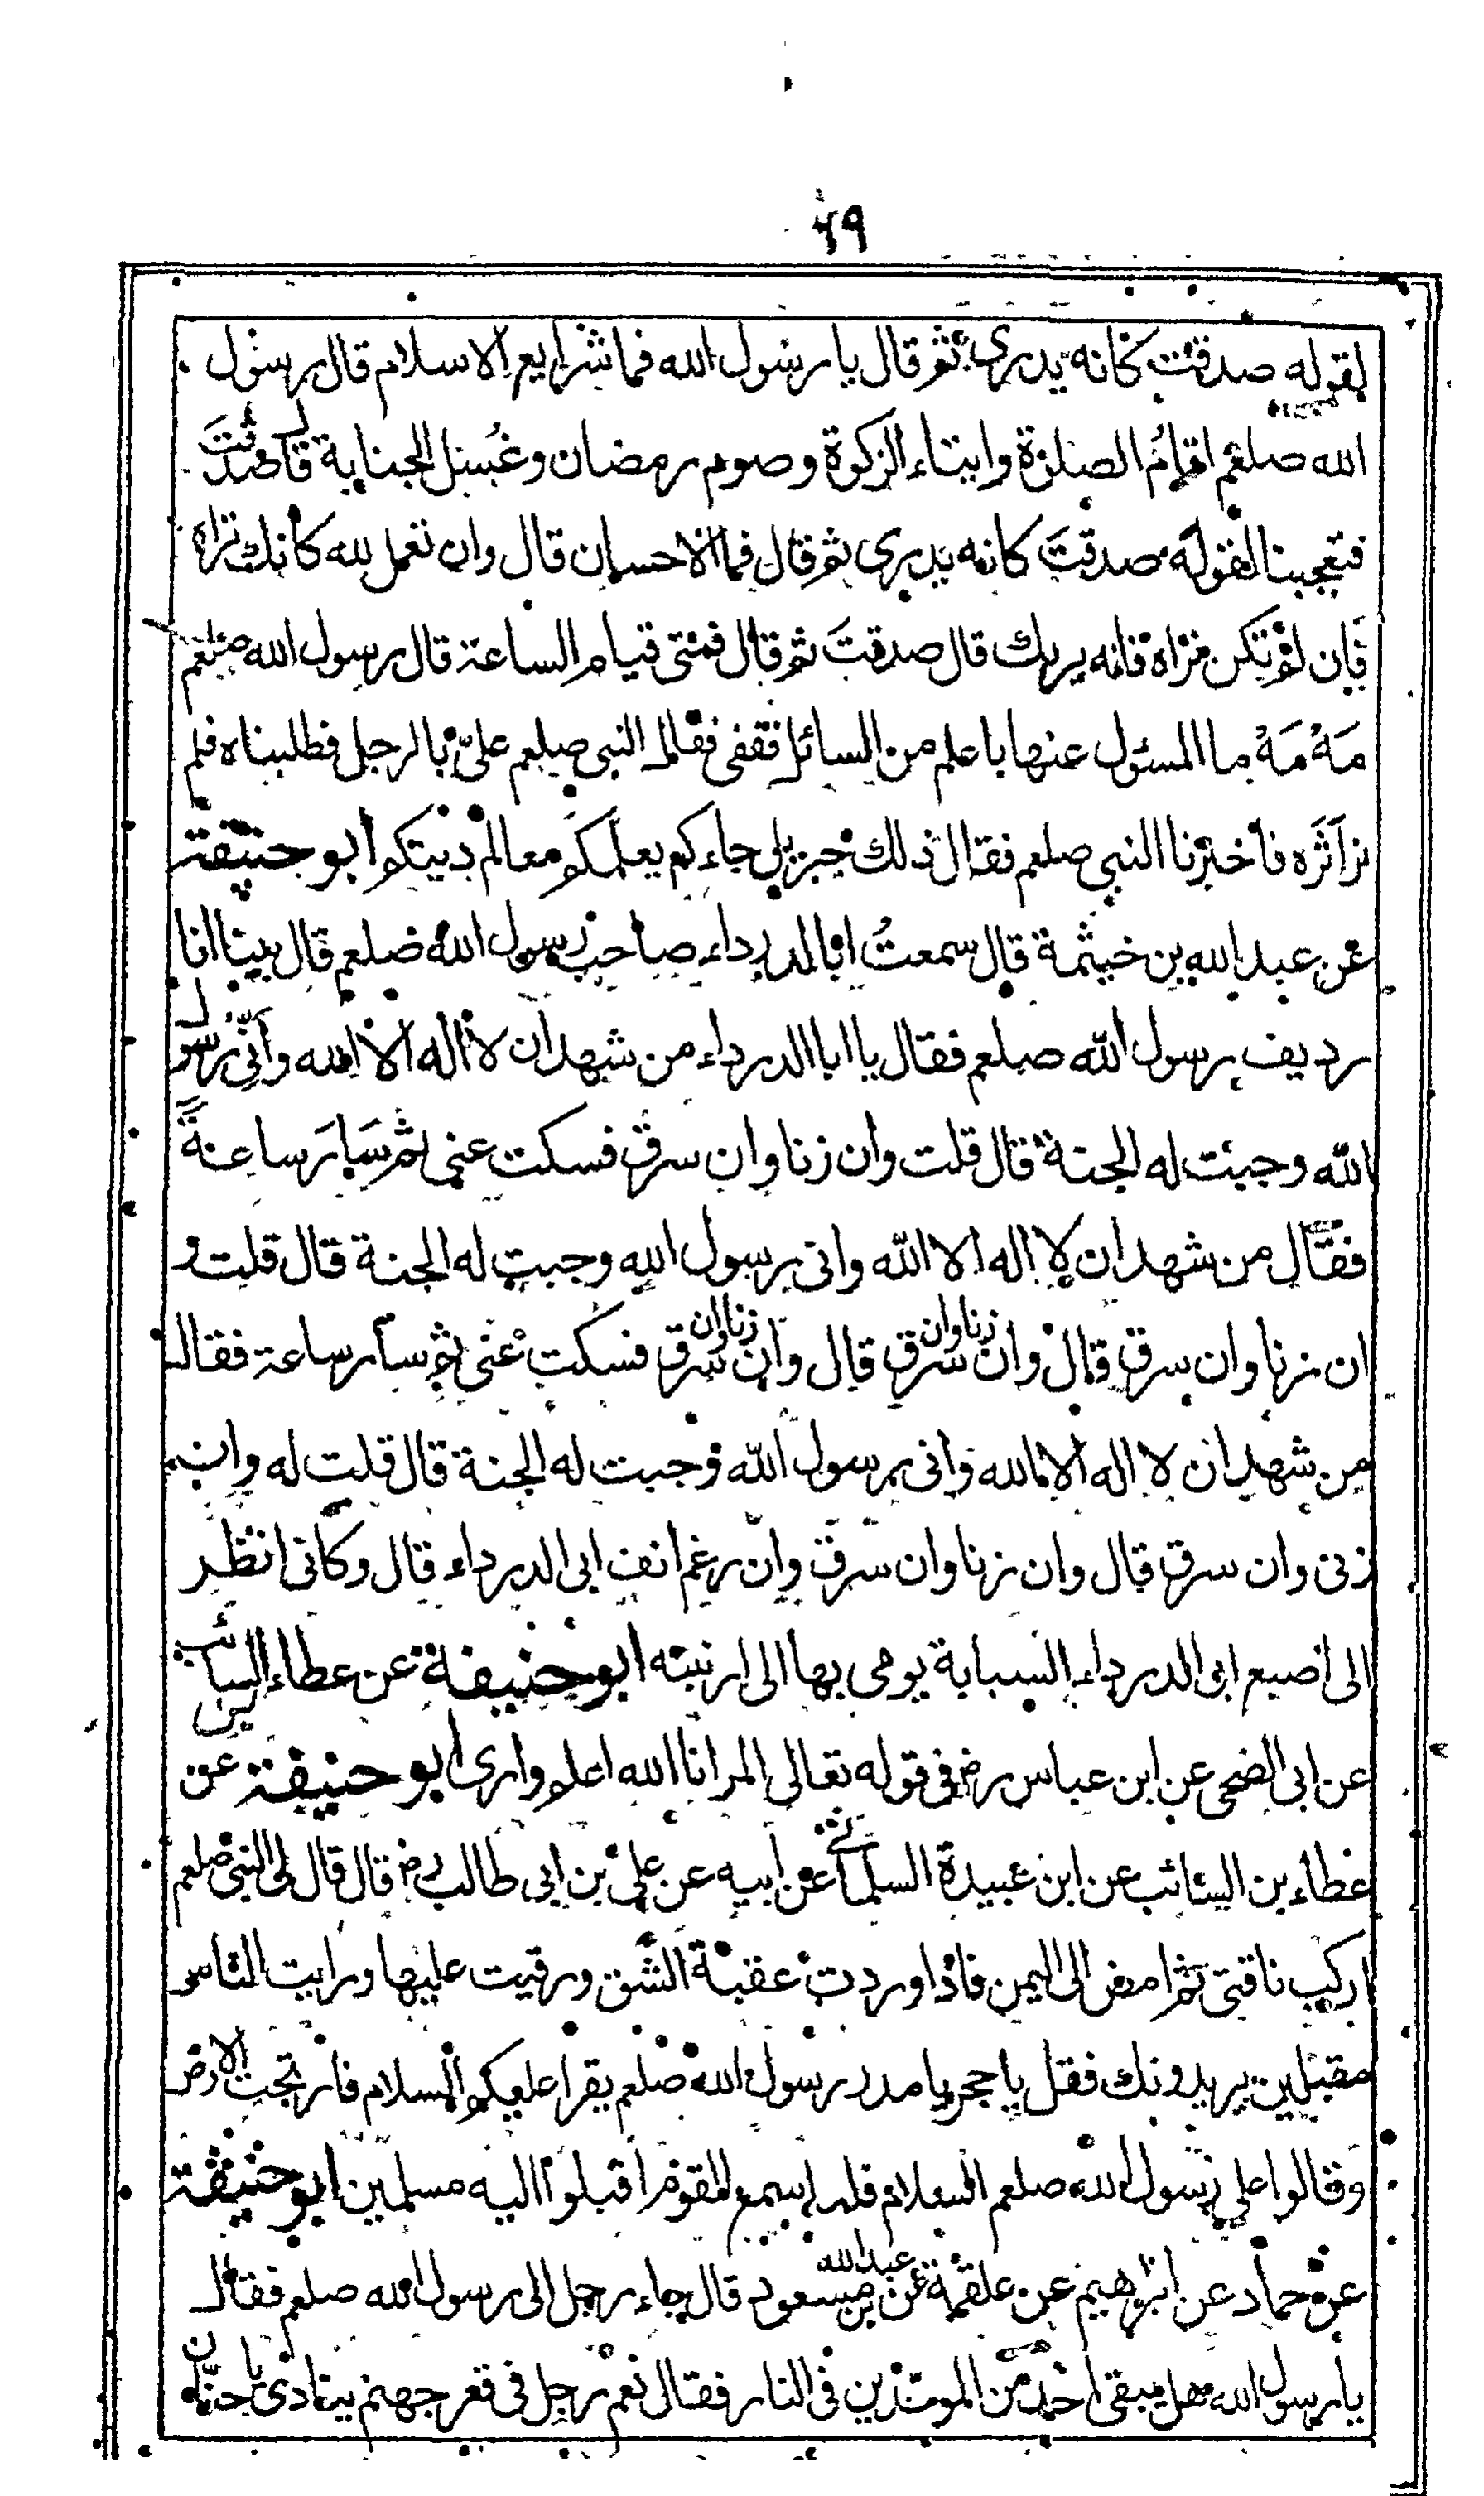 ٤٩
لقوله صدقت كانه يدرى ثم قال يا رسول الله فما شرايع الاسلام قال رسول
الله صلعم اقام الصلوة وايتاء الزكوة وصوم رمضان وغسل الجنابة قال صدقت
فتعجبنا لقوله صدقت كانه يدرى ثم قال فما الاحسان قال وان تعمل لله كانك تراه
فان لم تكن تراه فانه يريك قال صدقت ثم قال فمتى قيام الساعة قال رسول الله صلعم
مَهْ مَهْ ما المسئول عنها باعلم من السائل فقفى فقال النبى صلعم علىّ بالرجل فطلبناه فلم
نر اثره فاخبرنا النبى صلعم فقال ذلك جبريل جاءكم يعلمكم معالم دينكم ابو حنيفة
عن عبد الله بن خيثمة قال سمعتُ ابا الدرداء صاحب رسول الله صلعم قال بينا انا
رديف رسول الله صلعم فقال يا ابا الدرداء من شهد ان لا اله الا الله وانّى رسول
الله وجبت له الجنة قال قلت وان زنا وان سرق فسكت عنى ثم سَارَ ساعةً
فقال من شهد ان لا اله الا الله وانى رسول الله وجبت له الجنة قال قلت و
ان زنا وان سرق قال وان زنا وان سرق قال وان زنا وان سرق فسكت عنى ثم سار ساعة فقال
من شهد ان لا اله الا الله وانى رسول الله وجبت له الجنة قال قلت له وان
زنى وان سرق قال وان زنا وان سرق وان رغم انف ابى الدرداء قال وكانى انظر
الى اصبع ابى الدرداء السبابة يومى بها الى ارنبته ابو حنيفة عن عطاء بن السائب
عن ابى الضحى عن ابن عباس رض فى قوله تعالى المر انا الله اعلم وارى ابو حنيفة عن
عطاء بن السائب عن ابن عبيدة السلمانى عن ابيه عن على بن ابى طالب رض قال قال لى النبى صلعم
اركب ناقتى ثم امض الى اليمن فاذا وردت عقبة الشق ورقيت عليها ورايت الناس
مقبلين يريدونك فقل يا حجر يا مدر رسول الله صلعم يقرا عليكم السلام فارتجت الارض
وقالوا على رسول الله صلعم السلام فلما سمع القوم اقبلوا اليه مسلمين ابو حنيفة
عن حماد عن ابرهيم عن علقمة عن عبد الله بن مسعود قال جاء رجل الى رسول الله صلعم فقال
يا رسول الله هل يبقى احد من الموحّدين فى النار فقال نعم رجل فى قعر جهنم ينادى يا حنّان